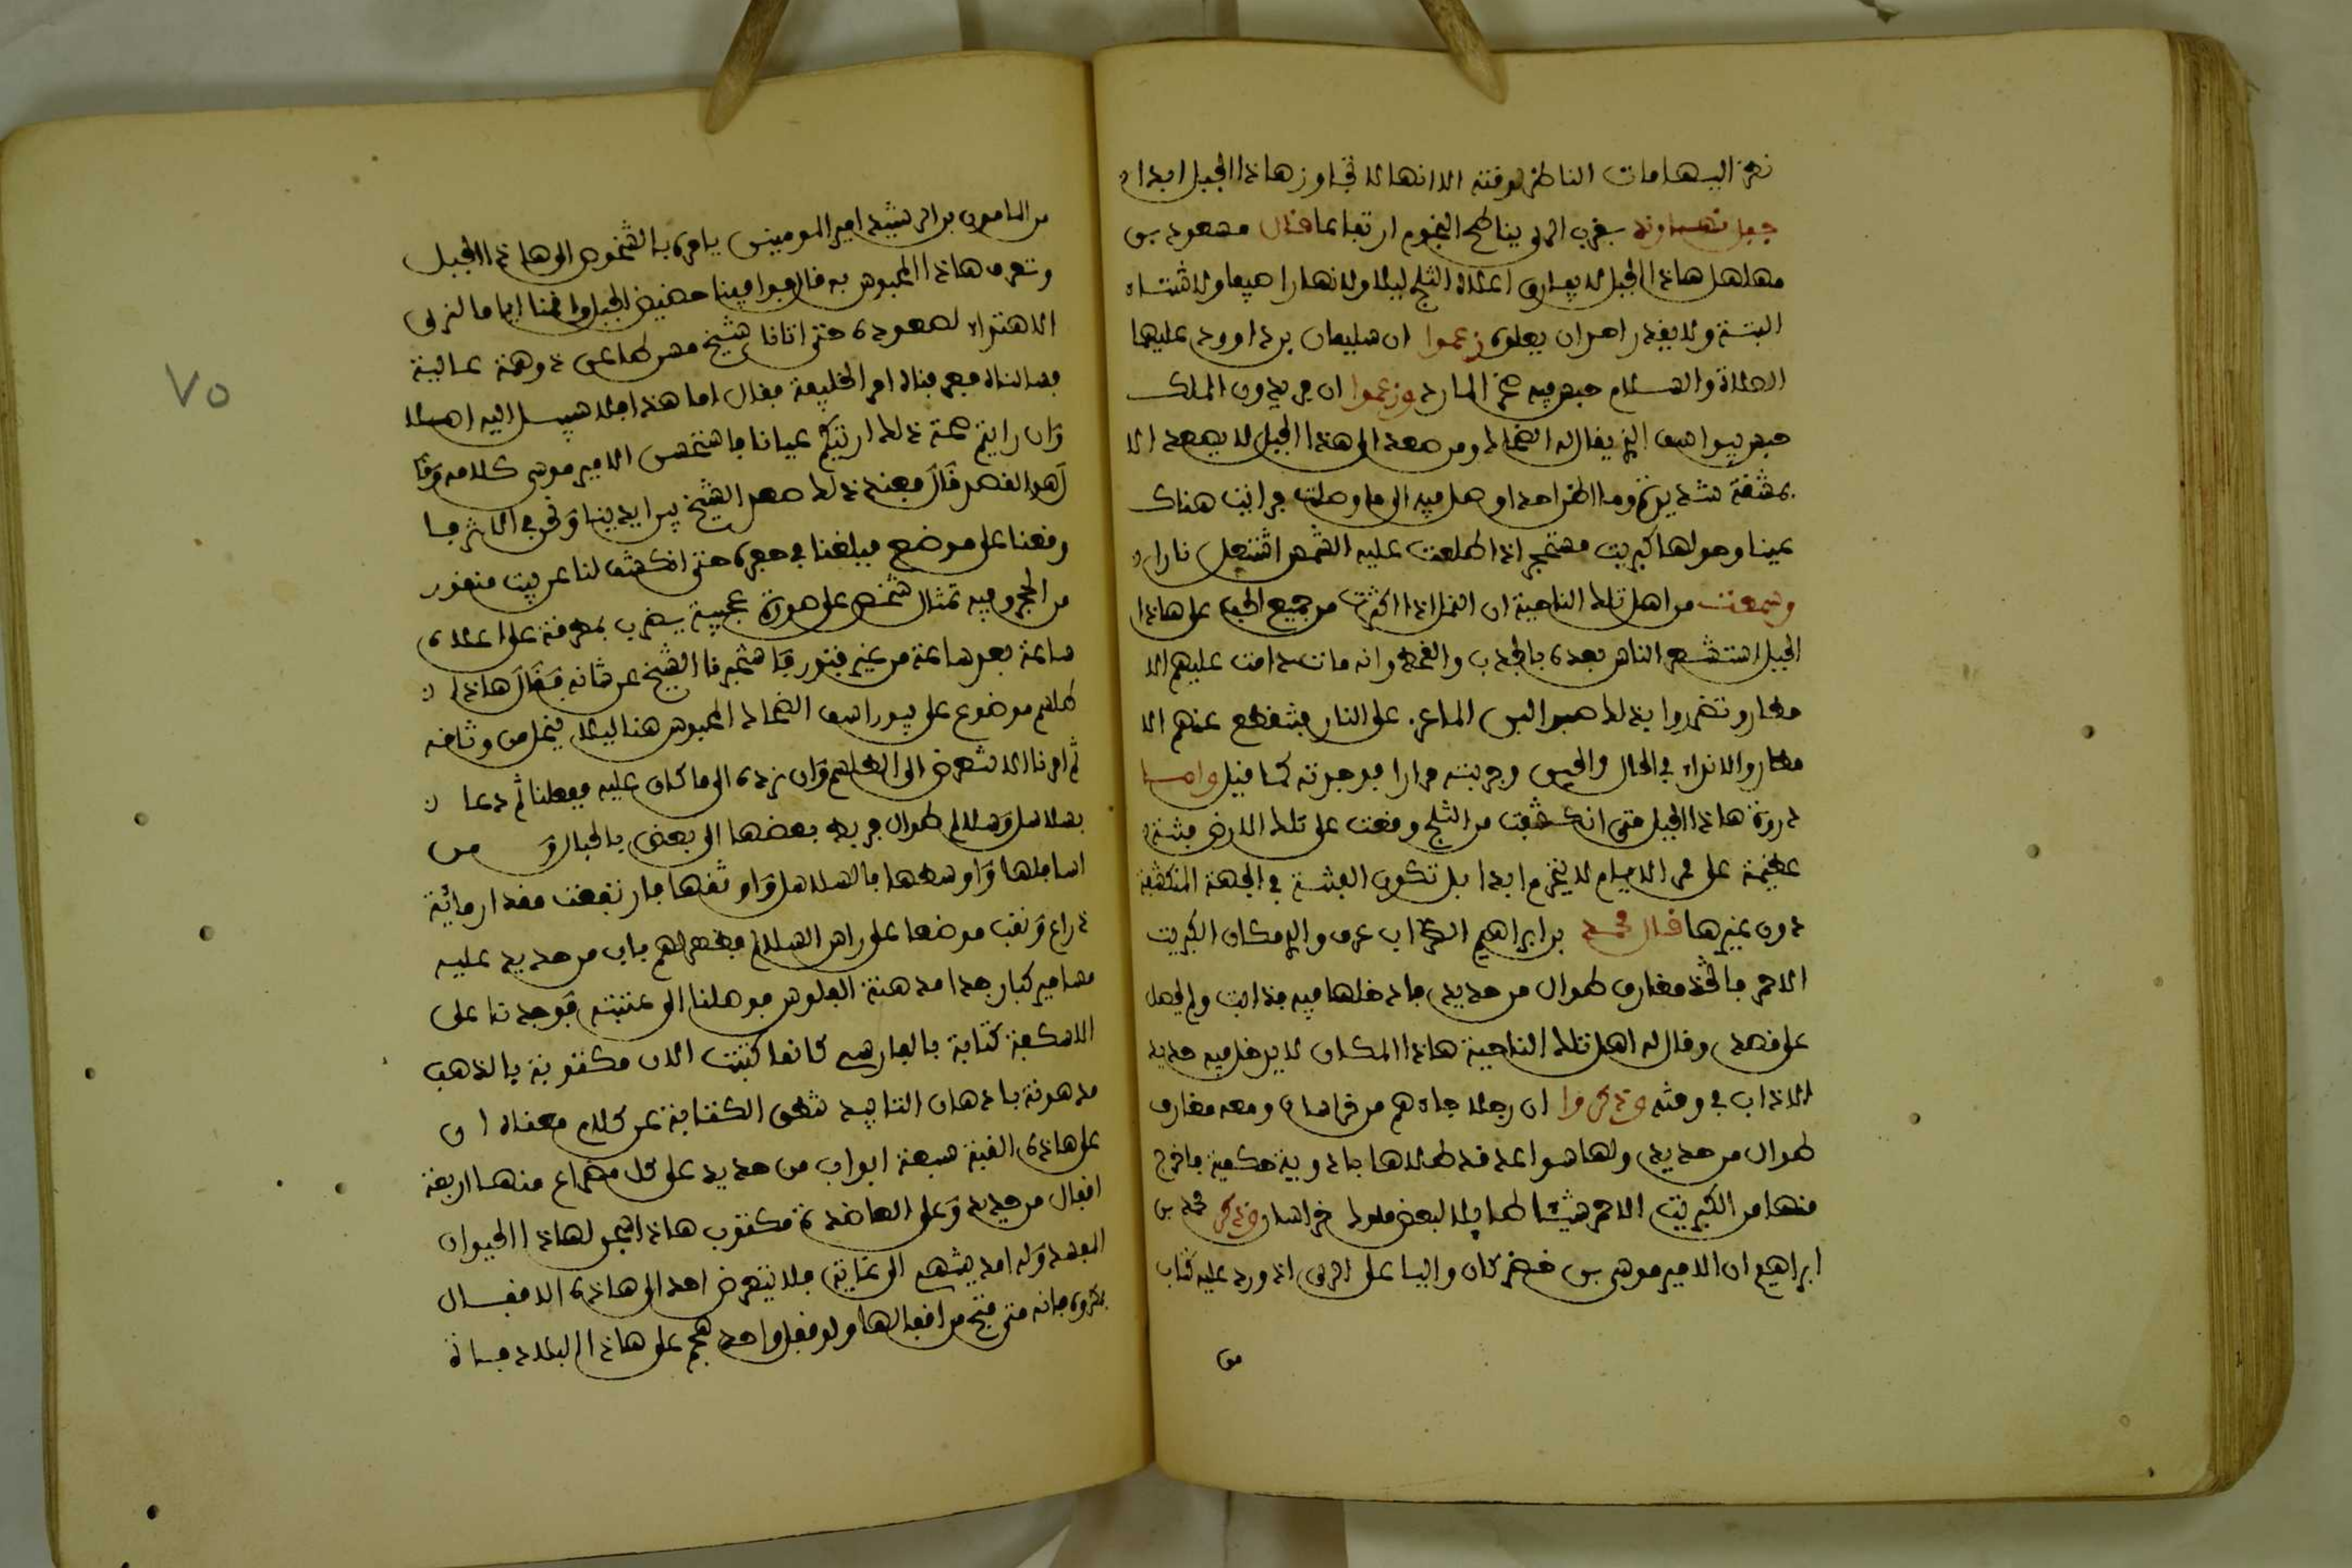 نظر اليها مات الناظر لوقته الا انها لا تجاوز هاذا الجبل ابدا
جبل نهاوند بقرب الري يناطح النجوم ارتفاعا فال مسعود بن
مهلهل هاذا الجبل لا يفارق اعلاه الثلج ليلا ولا نهارا صيفا ولا شتاء
البتة ولا يقدر احد ان يعلوه زعموا ان سليمان بن داوود عليهما
الصلاة والسلام حبس فيه صخر المارد وزعموا ان افريدون الملك
حبس بيوراسف الذي يقال له الضحاك ومن صعد الى هذا الجبل لا يصعد الا
بمشقة شديدة وما اظن احدا وصل فيه الى ما وصلت فرايت هناك
عينا وحولها كبريت مستحجر اذا طلعت عليه الشمس اشتعل نارا
وسمعت من اهل تلك الناحية ان النمل اذا اكثرت من جميع الحب على هاذا
الجبل استشعر الناس بعده بالجدب والقحط وانه مات دامت عليهم الا
مطار وتضرروا بذلك صبوا لبن الماعز على النار فتنقطع عنهم الا
مطار والانواء في الحال والحين وجربته مرارا فوجدته كما فيل واما
ذروة هاذا الجبل متى انكشفت من الثلج وقعت على تلك الارض فتنة
عظيمة على مر الايام لا ينخرم ابدا بل تكون الفتنة في الجهة المنكشفة
دون غيرها فال محمد بن ابراهيم الضراب عرف والدي مكان الكبريت
الاحمر فاتخذ مغارف طوال من حديد فادخلها فيه فذابت ولم يحصل
على قصد وقال له اهل تلك الناحية هاذا المكان لا يدخل فيه حديد
الا ذاب في وقته وذكروا ان رجلا جاءهم من خراسان ومعه مغارف
طوال من حديد ولها سواعد قد طلاها بادوية حكمية فاخرج
منها من الكبريت الاحمر شيئا طايلا لبعض ملوك خراسان وذكر محمد بن
ابراهيم ان الامير موسى بن خضر كان واليا على الري اذ ورد عليه كتاب
من
٧٥
من المامون بن الرشيد امير المومنين يامره بالشخوص الى هاذا الجبل
وتعرف هاذا المحبوس به فال فوافينا حضيض الجبل واقمنا اياما لنرى
الاهتداء لصعوده حتى اتانا شيخ مسن طاعن ذو همة عالية
فسالناه فعرفناه امر الخليفة فقال اما هذا فلا سبيل اليه اصلا
وان رايتم صحة ذلك اريتكم عيانا فاستحسن الامير موسى كلامه وقا
ل هو القصد قال فعند ذلك صعد الشيخ بين ايدينا ونحن في الاثر فا
وقفنا على موضع فبلغنا في حفره حتى انكشف لنا عن بيت منقور
من الحجر وفيه تمثال شخص على صورة عجيبة يضرب بمطرقة على اعلاه
ساعة بعد ساعة من غير فتور فاستخبرنا الشيخ عن شانه فقال هاذا
طلسم موضوع على بيوراسف الضحاك المحبوس هنا ليلا ينحل من وثاقه
ثم امرنا الا نتعرض الى الطلسم وان نرده الى ما كان عليه ففعلنا ثم دعا
بسلاسل وسلالم طوال فربط بعضها الى بعض بالحبال و من
اسافلها واوسطها بالسلاسل واوثقها فارتفعت مقدار مائية
ذراع ونقب موضعا على راس السلالم فظهر لهم باب من حديد عليه
مسامير كبار جدا مدهنة الفلوس فوصلنا الى عتبته فوجدنا على
الاسكفة كتابة بالفارسي كانها كتبت الان مكتوبة بالذهب
مدهونة بادهان التابيد تنطق الكتابة عن كلام معناه ان
على هاذه القبة سبعة ابواب من حديد على كل مصراع منها اربعة
اقفال من حديد وعلى العاضدة مكتوب هاذا سجن لهاذا الحيوان
المفسد وله امد ينتهي الى غاية فلا يتعرض احد الى هاذه الاقفال
بمكروه فانه متى فتح من اقفالها ولو قفل واحد هجم على هاذا البلاد فساة